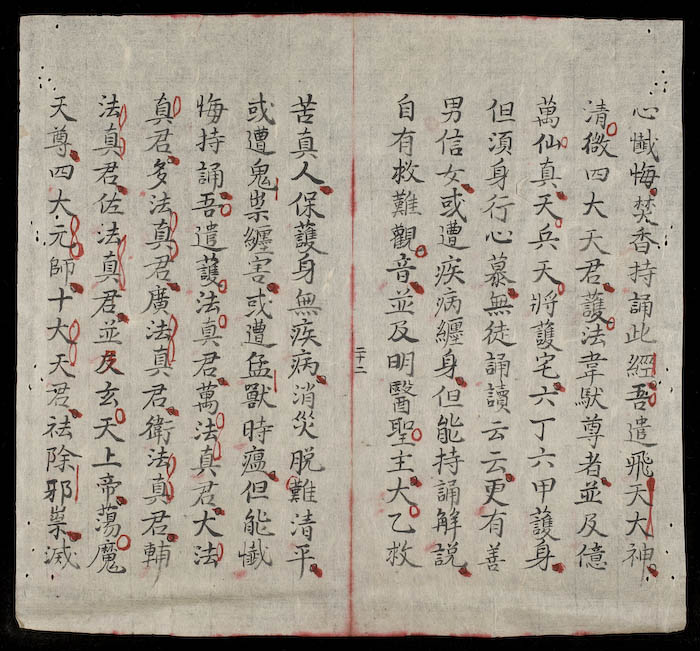 心懺悔焚香持誦此經吾遣飛天大神
清微四大天君護法韋馱尊者並及億
萬仙真天兵天將護宅六丁六甲護身
但須身行心慕無徒誦讀云云更有善
男信女或遭疾病纏身但能持誦解説
自有救難觀音並及明醫聖主大乙救
二十二
苦真人保護身無疾病消災脱難清平
或遭鬼祟纏害或遭猛獸時瘟但能懺
悔持誦吾遣護法真君萬法真君大法
真君多法真君廣法真君衛法真君輔
法真君佐法真君並及玄天上帝蕩魔
天尊四大元師十大天君祛除邪祟滅